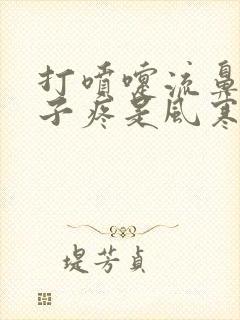 打噴嚏流鼻
子疼是風寒
堤芳貞